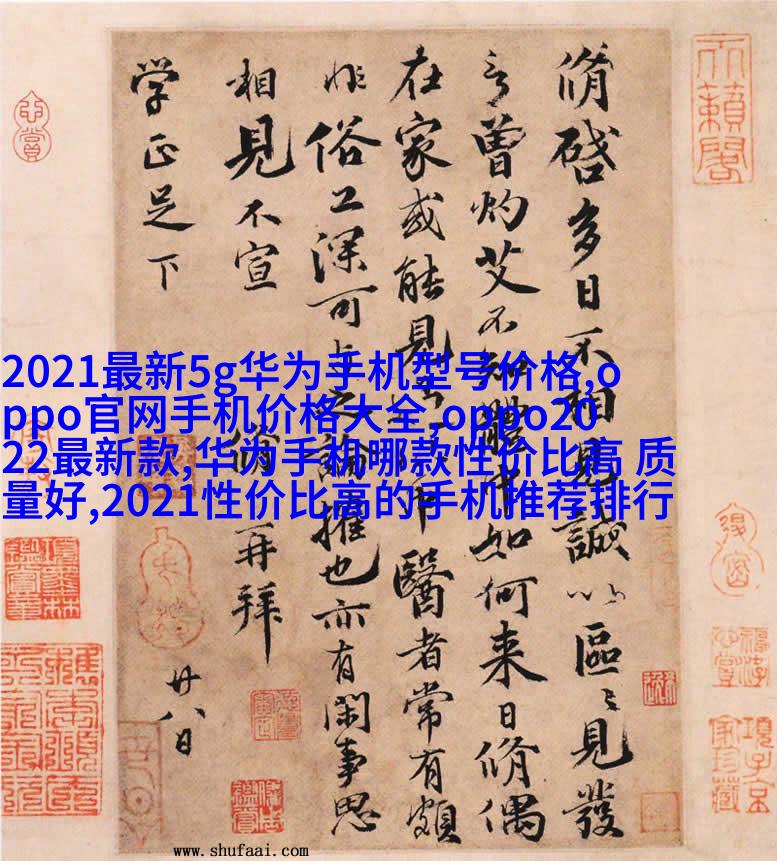 脩啓多日不相見誠以區〻見發
言曾灼艾不知體中如何来日脩偶
在家或能見中醫者常有頗
非俗工深可与之論搉也亦有閑事思
相見不宣
脩再拜
廿八日
学正足下
2021最新5g华为手机型号价格,o
ppo官网手机价格大全,oppo20
22最新款,华为手机哪款性价比高 质
量好,2021性价比高的手机推荐排行
天籟閣
項子京
家珍藏
www.shufaai.com